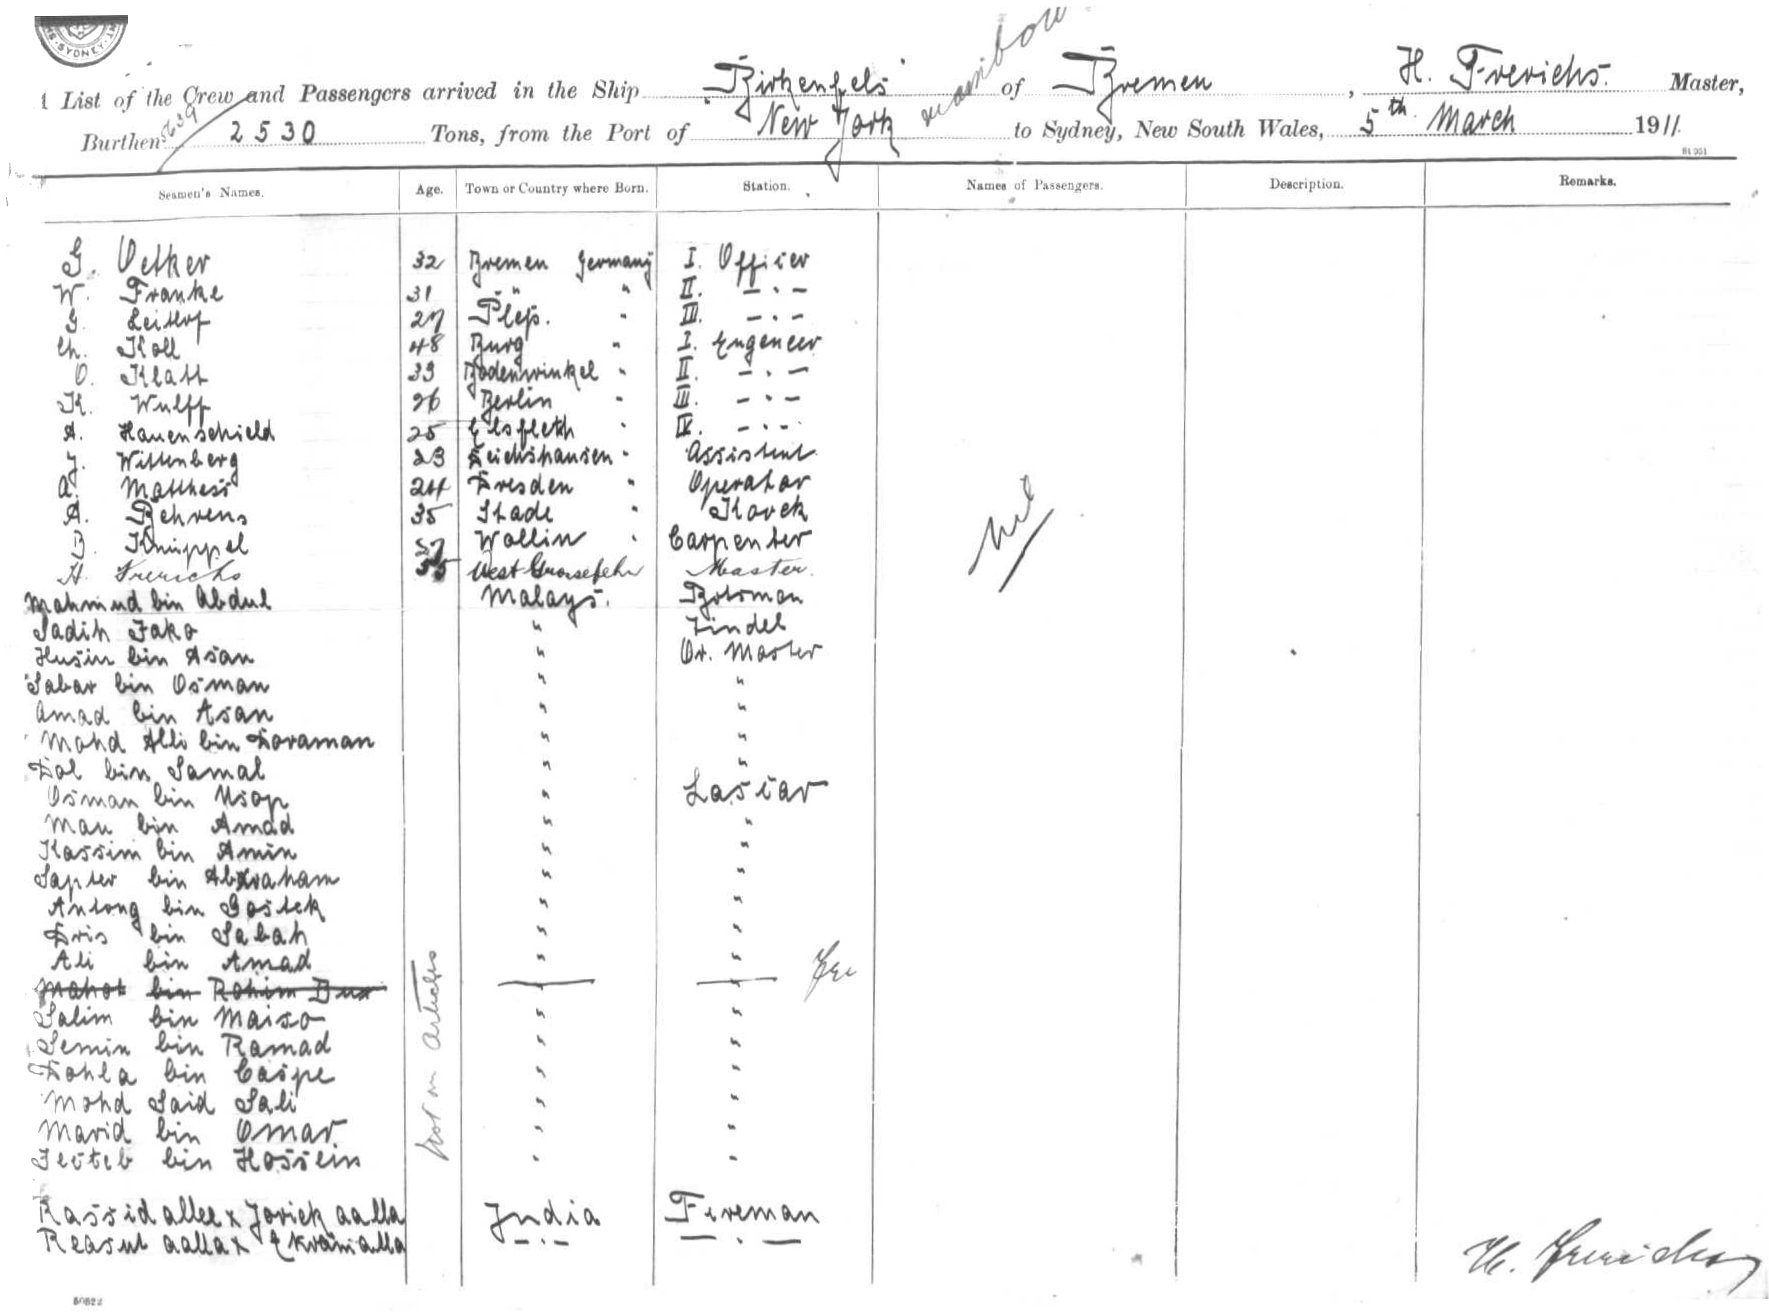 SYDNEY
List of the Crew and Passengers arrived in the Ship "Birkenfels" of Bremen, H. Frerichs. Master,
Burthen 5639 2530 Tons, from the Port of New York to Sydney, New South Wales, 5th March 1911
Seamen's Names. Age. Town or Country where Born. Station. Names of Passengers. Description. Remarks.
G. Oetker 32 Bremen Germany I. Officer
W. Franke 31 " " II. – · –
G. 27 Pless. " III. – · –
Ch. Koll 48 Burg " I. Engeneer
O. Klatt 33 Bodenwinkel " II. – · –
K. Wulff 26 Berlin " III. – · –
A. Hauenschield 25 Elsfleth " IV. – · –
J. Wittenberg 23 " Assistent
A. Matthess 24 Dresden " Operator
A. Behrens 35 Stade " Kock
Knüppel 57 Wollin " Carpenter
H. Frerichs 55 West Grossefehn Master.
Mahmud bin Abdul Malays. Botsman
Sadih Jako " Tindel
Husin bin Asan " Qr. Master
Sabar bin Osman " "
Amad bin Asan " "
Mohd Alli bin Doraman " "
Dol bin Samal " "
Osman bin Usop " Lascar
Man bin Amad " "
Kassim bin Amin " "
Sapter bin Abraham " "
Antong bin Gostek " "
Dris bin Sabah " "
Ali bin Amad " "
Mahot bin Rohim Bux
Salim bin Maiso " "
Semin bin Ramad " "
Dohla bin Caspe " "
Mohd Said Sali " "
Marid bin Omar " "
bin Hossein " "
Not on articles
nil
Rassid allee x Jorick aalla India Fireman
Reasul aalla x Ekramalla – · – – · –
H. Frerichs